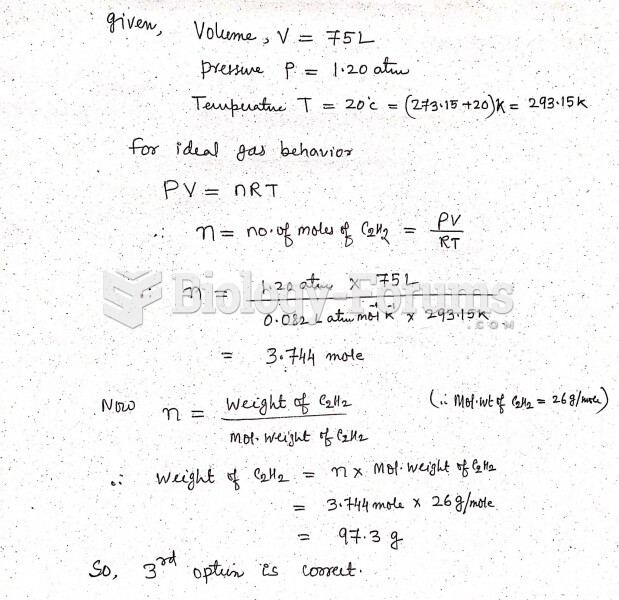 given, Volume, V = 75L
pressure P = 1.20 atm
Temperature T = 20°C = (273.15 + 20)K = 293.15K
for ideal gas behavior
PV = nRT
∴ n = no. of moles of C2H2 = PV / RT
∴ n = 1.20 atm × 75L / 0.082 L atm mol⁻¹ K⁻¹ × 293.15K
Biology-Forums
.COM
= 3.744 mole
Now n = weight of C2H2 / Mol. weight of C2H2 (∵ Mol. wt of C2H2 = 26g/mole)
∴ weight of C2H2 = n × Mol. weight of C2H2
= 3.744 mole × 26g/mole
= 97.3 g
So, 3rd option is correct.